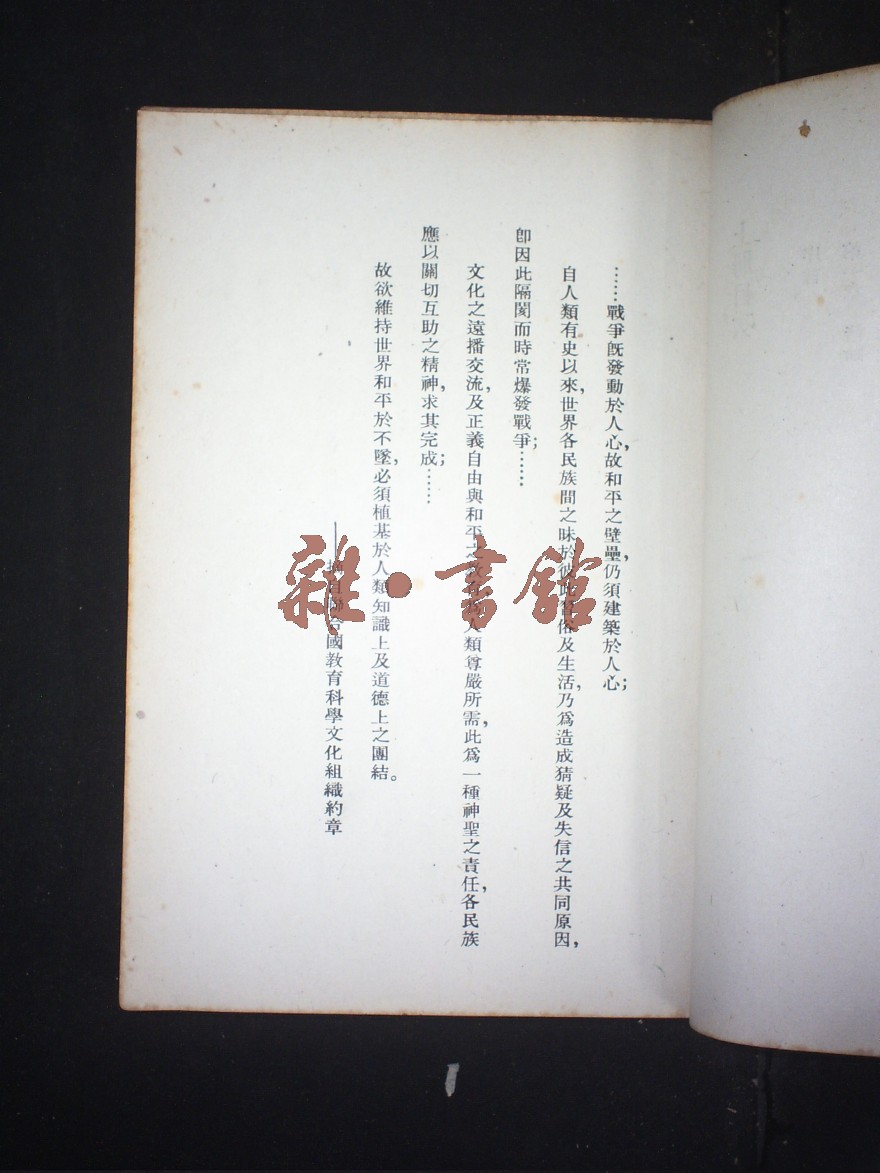 ……戰爭旣發動於人心,故和平之壁壘,仍須建築於人心;
自人類有史以來,世界各民族間之昧於彼此習俗及生活,乃爲造成猜疑及失信之共同原因,
卽因此隔閡而時常爆發戰爭;……
文化之遠播交流,及正義自由與和平之人類尊嚴所需,此爲一種神聖之責任,各民族
應以關切互助之精神,求其完成;……
故欲維持世界和平於不墜,必須植基於人類知識上及道德上之團結。
——摘自聯合國教育科學文化組織約章
雜·書館